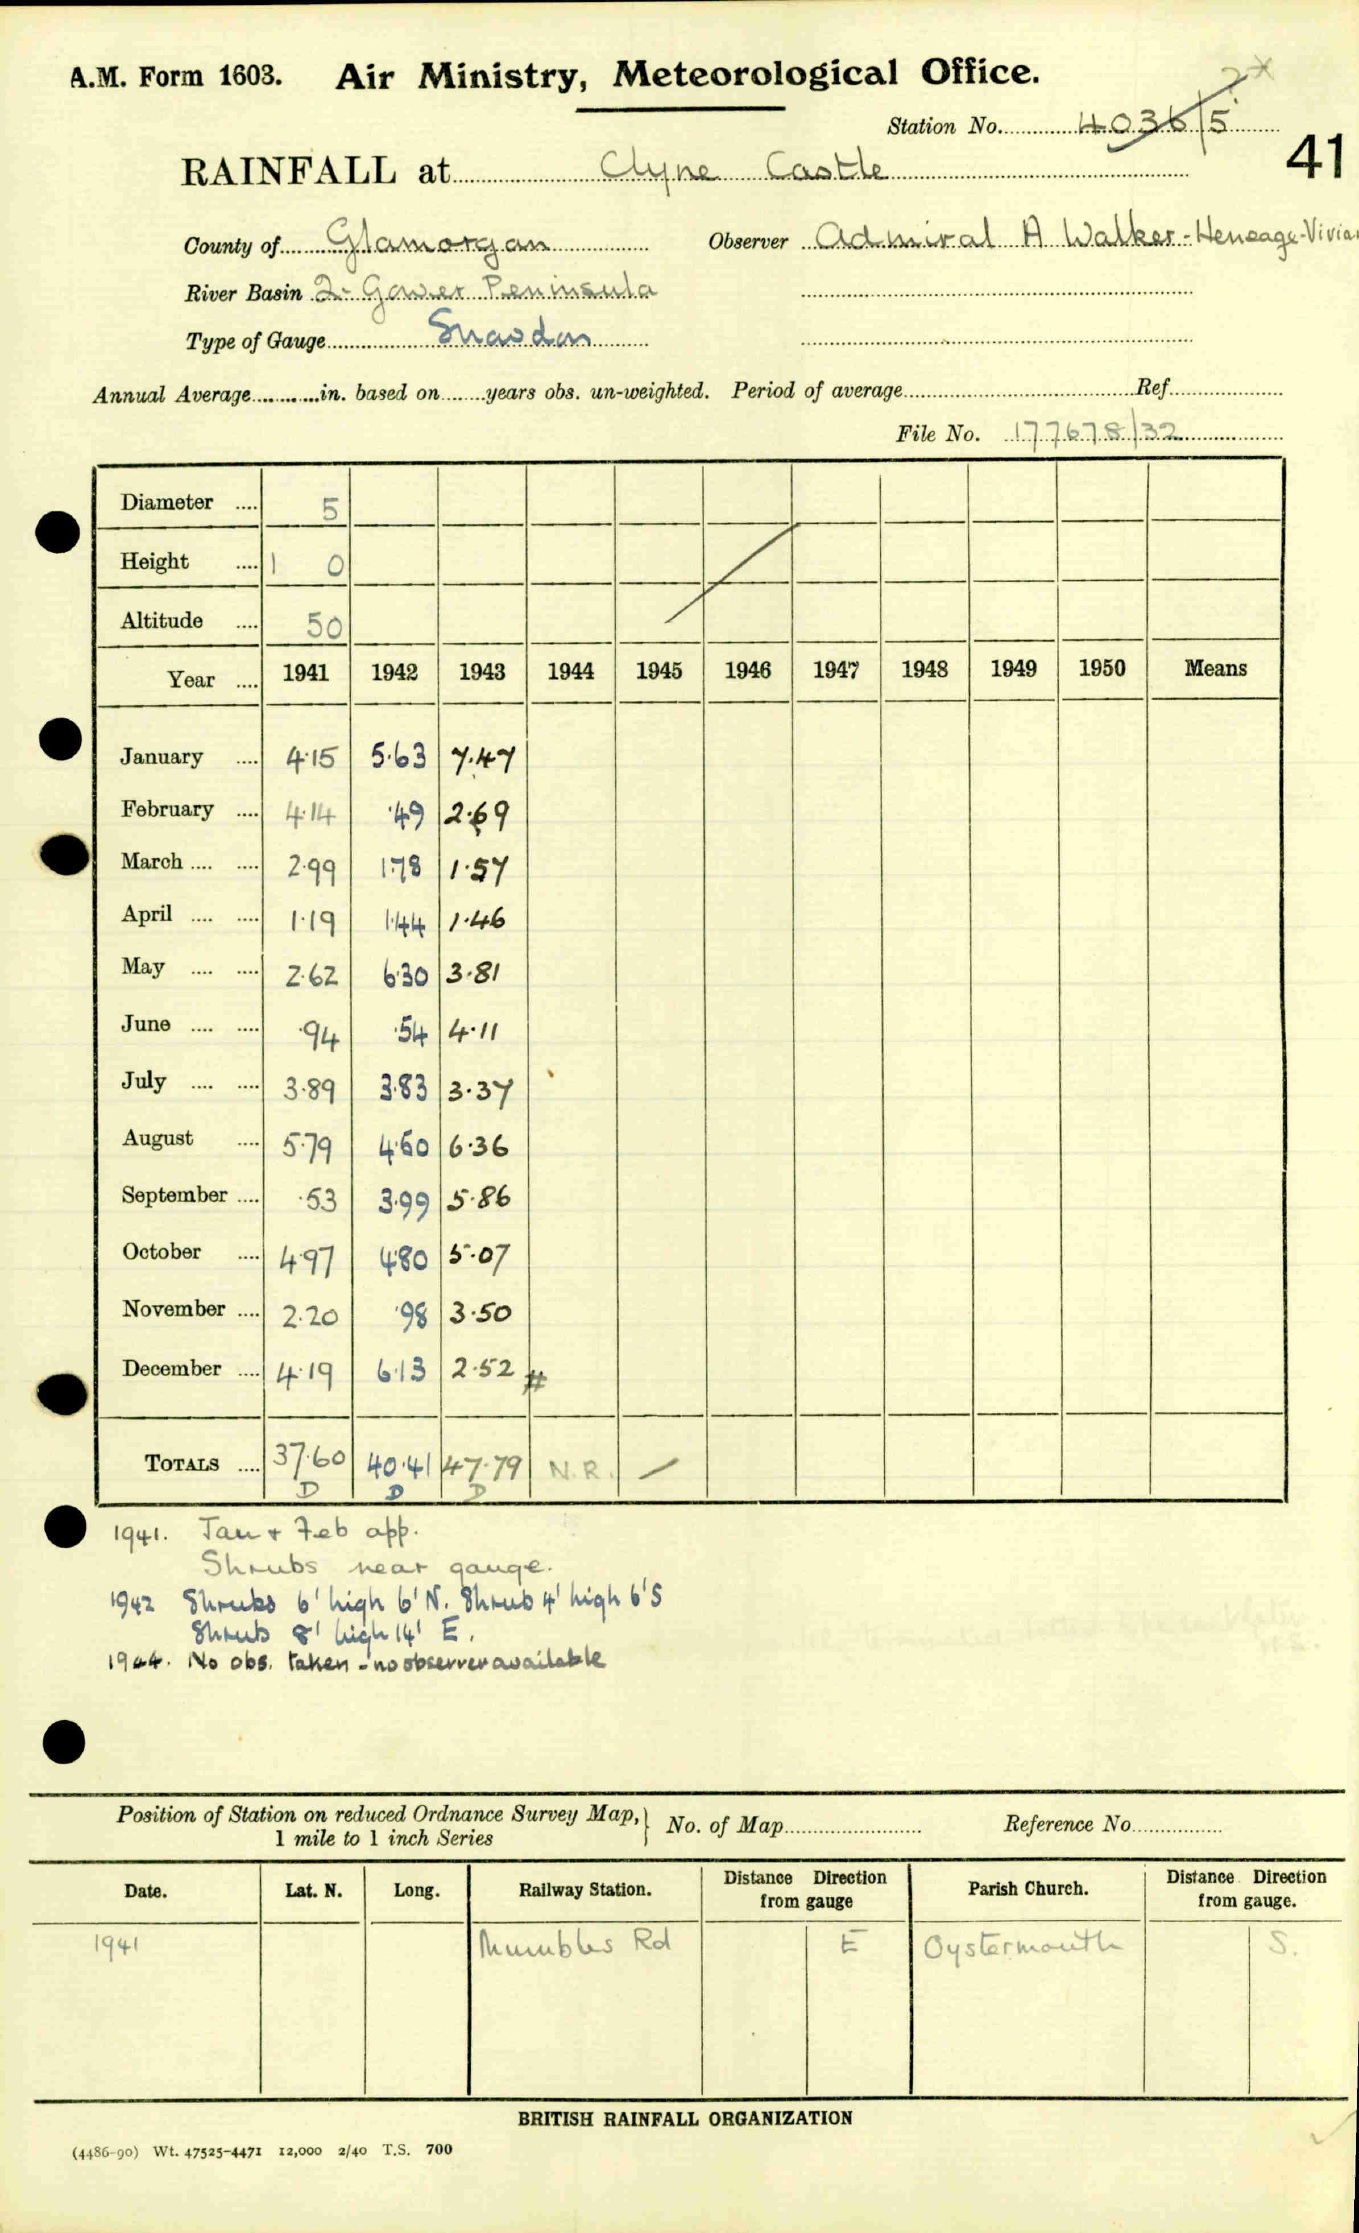 A.M. Form 1603. Air Ministry, Meteorological Office.
Station No. 4036/5
41
RAINFALL at Clyne Castle
County of Glamorgan Observer Admiral A Walker-Heneage-Vivian
River Basin 2- Gower Peninsula
Type of Gauge Snowdon
Annual Average in. based on years obs. un-weighted. Period of average Ref
File No. 177678/32
Diameter .... 5
Height .... 1 0
Altitude .... 50
Year .... 1941 1942 1943 1944 1945 1946 1947 1948 1949 1950 Means
January .... 4.15 5.63 7.47
February .... 4.14 .49 2.69
March .... .... 2.99 1.78 1.57
April .... .... 1.19 1.44 1.46
May .... .... 2.62 6.30 3.81
June .... .... .94 .54 4.11
July .... .... 3.89 3.83 3.37
August .... 5.79 4.60 6.36
September .... .53 3.99 5.86
October .... 4.97 4.80 5.07
November .... 2.20 .98 3.50
December .... 4.19 6.13 2.52 #
TOTALS .... 37.60 40.41 47.79 N.R.
D D D
1941. Jan + Feb app.
Shrubs near gauge.
1942 Shrubs 6' high 6' N. Shrub 4' high 6' S
Shrub 8' high 14' E.
1944. No obs. taken - no observer available
Position of Station on reduced Ordnance Survey Map, } No. of Map Reference No
1 mile to 1 inch Series
Date. Lat. N. Long. Railway Station. Distance Direction from gauge Parish Church. Distance Direction from gauge.
1941 Mumbles Rd E Oystermouth S.
BRITISH RAINFALL ORGANIZATION
(4486-90) Wt. 47525-4471 12,000 2/40 T.S. 700